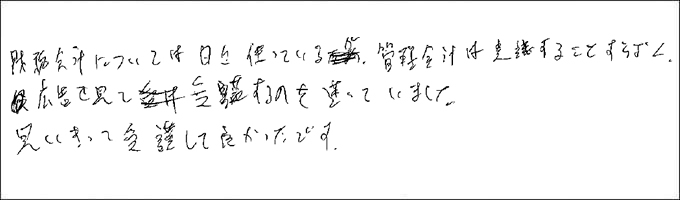 財務会計については日々使っているが、管理会計は意識することすらなく、
広告を見て受講するのを迷っていました。
思いきって受講して良かったです。